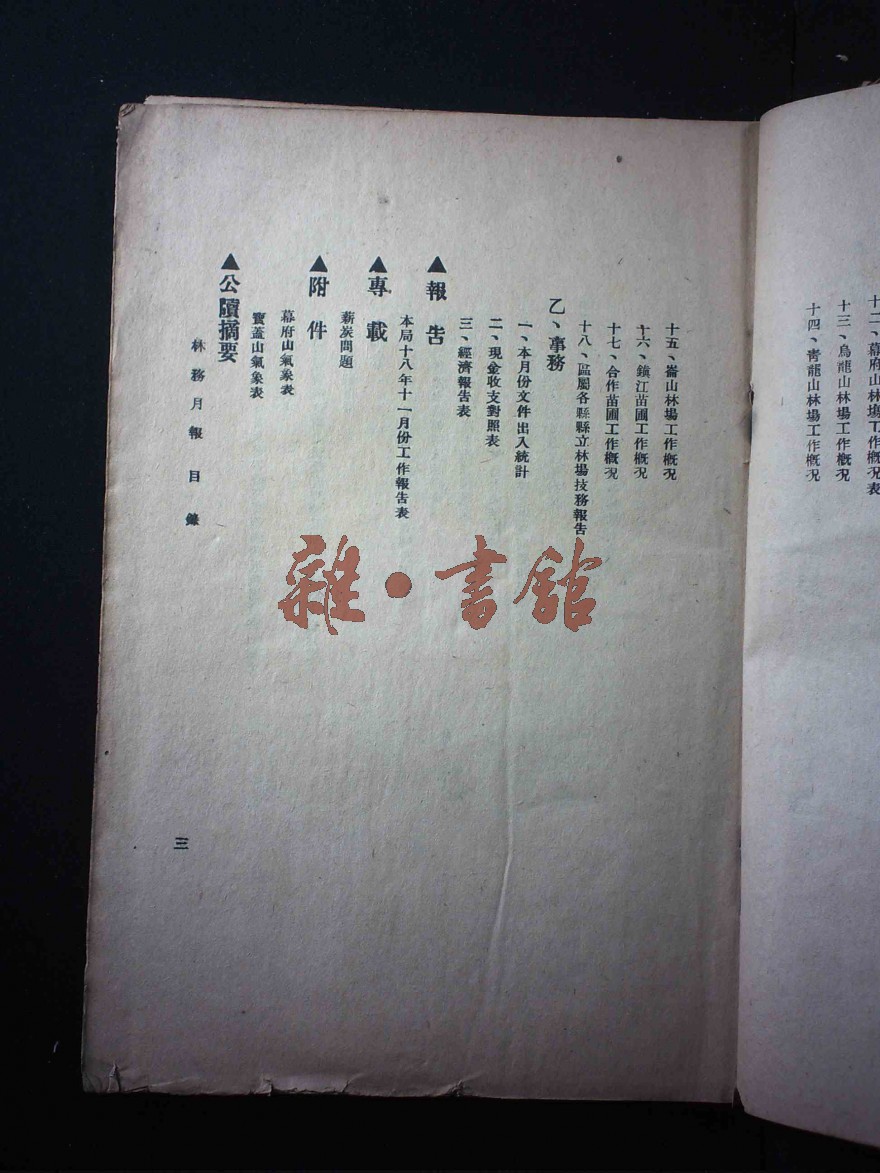 十二、幕府山林場工作概況表
十三、烏龍山林場工作概況
十四、青龍山林場工作概況
十五、崙山林場工作概況
十六、鎮江苗圃工作概況
十七、合作苗圃工作概況
十八、區屬各縣縣立林場技務報告
乙、事務
一、本月份文件出入統計
二、現金收支對照表
三、經濟報告表
▲報告
本局十八年十一月份工作報告表
▲專載
薪炭問題
▲附件
幕府山氣象表
寶蓋山氣象表
▲公牘摘要
林務月報 目錄
三
雜·書館